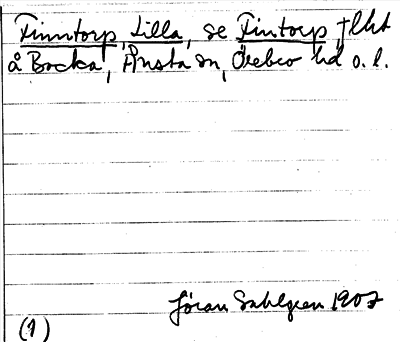 Finntorp, Lilla, se Fintorp †lht
å Bocka, Ånsta sn, Örebro hd o. l.
Jöran Sahlgren 1907
(1)